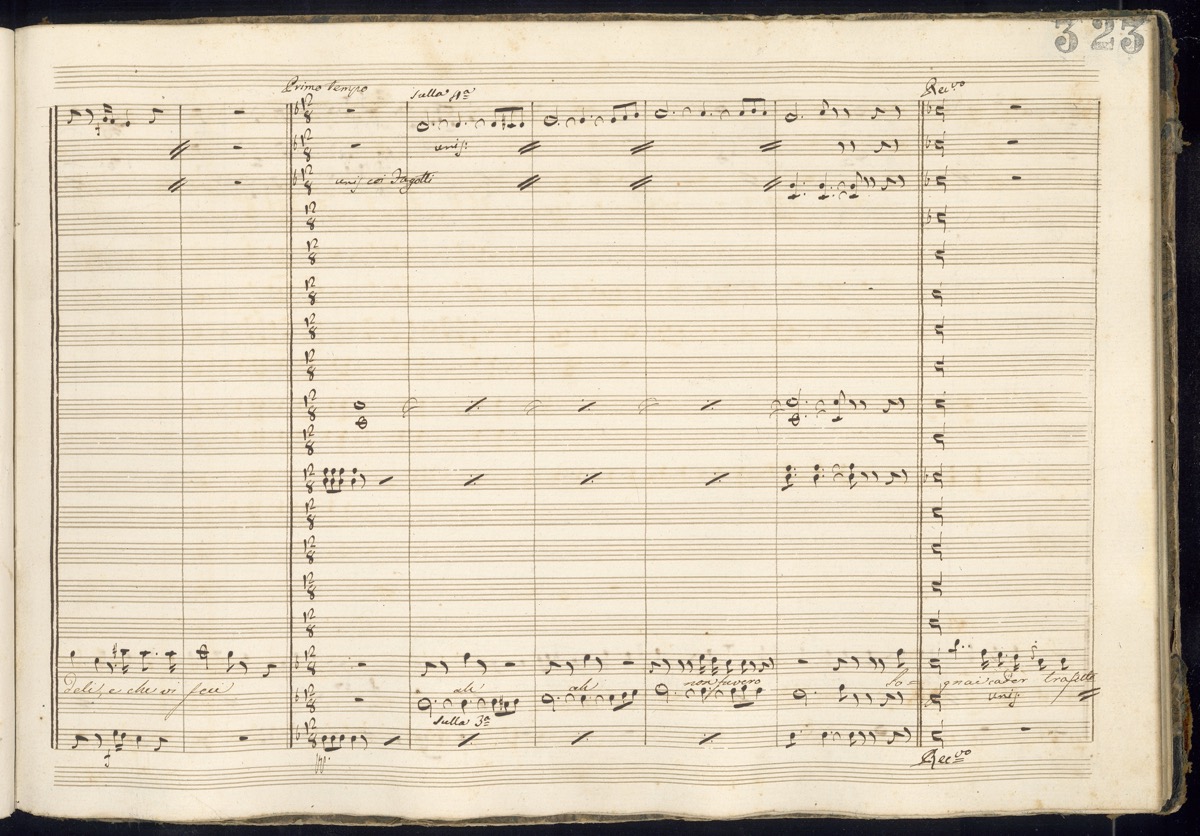 323
Primo tempo
sulla 4ª
Recvo
unis:
unis coi Fagotti
deli, e che vi feci
ah!
ah!
non fuvero
So=
gnai cader trafitto
unis:
sulla 3ª
pp
Recvo